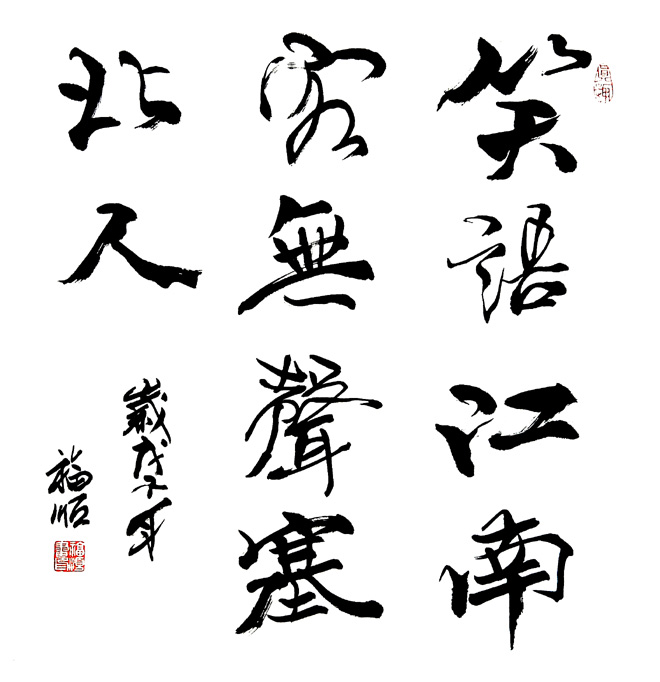 笑語江南
客無聲塞
北人
歲戊子年
福順